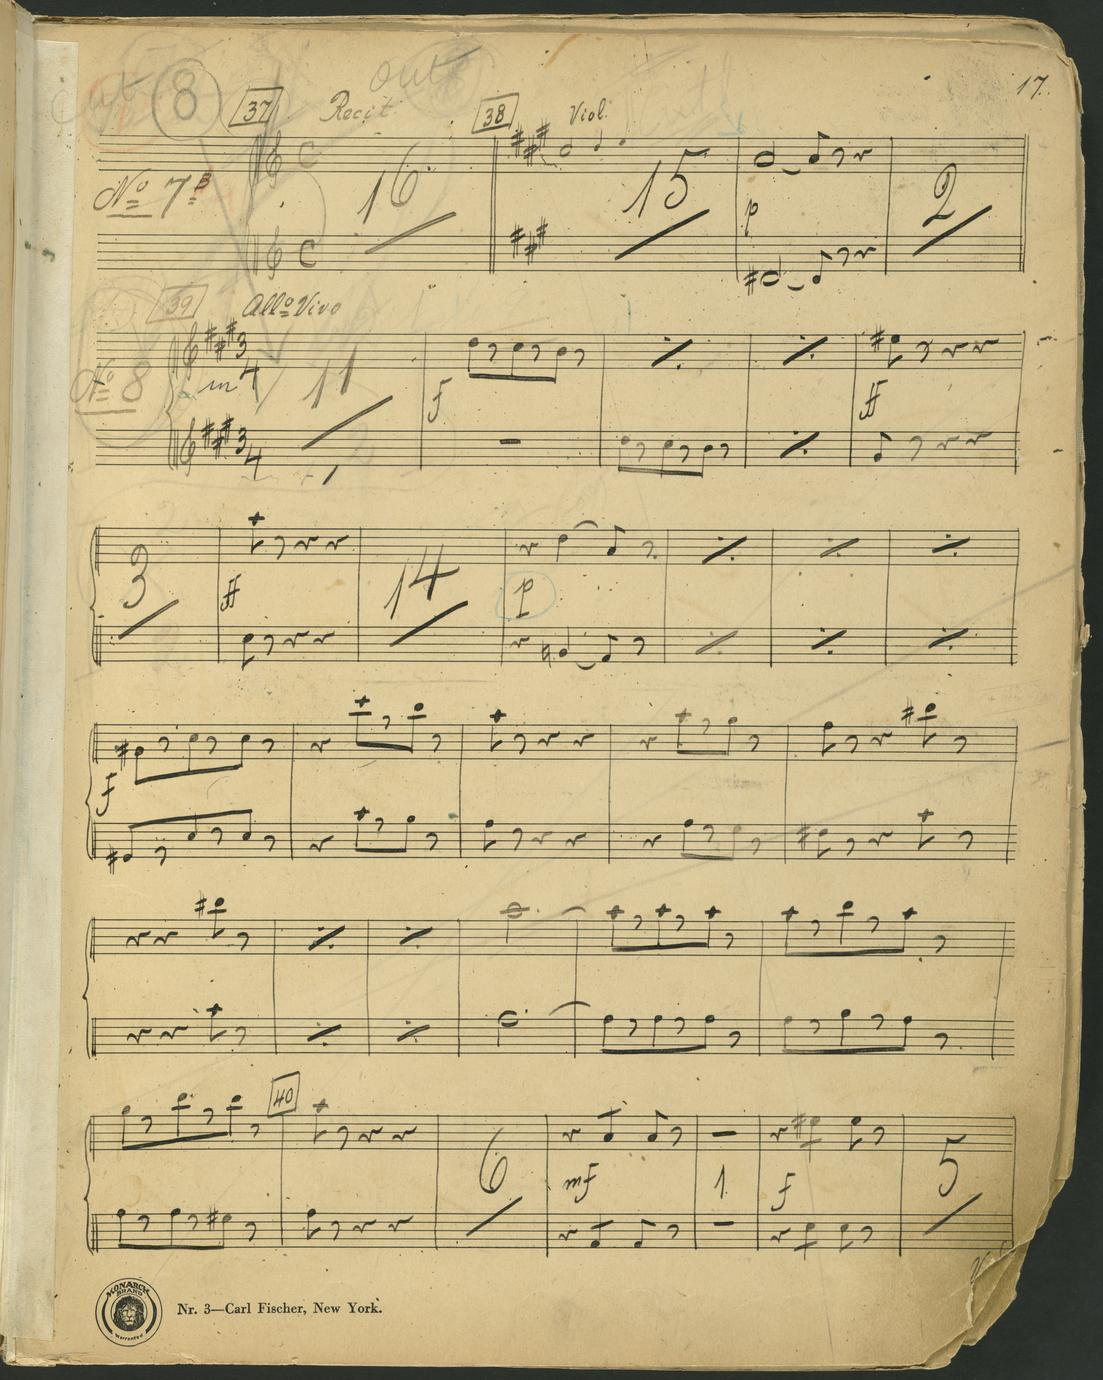 17.
out 8 37 Recit. out 38 Viol.
C 16 15 p 2
No 7B
C
39 Allo Vivo
3 4 in 11 f ff
No 8
3 4
3 ff 14 p
f
40
6 mf 1 f 5
MONARCH BRAND Warranted
Nr. 3—Carl Fischer, New York.